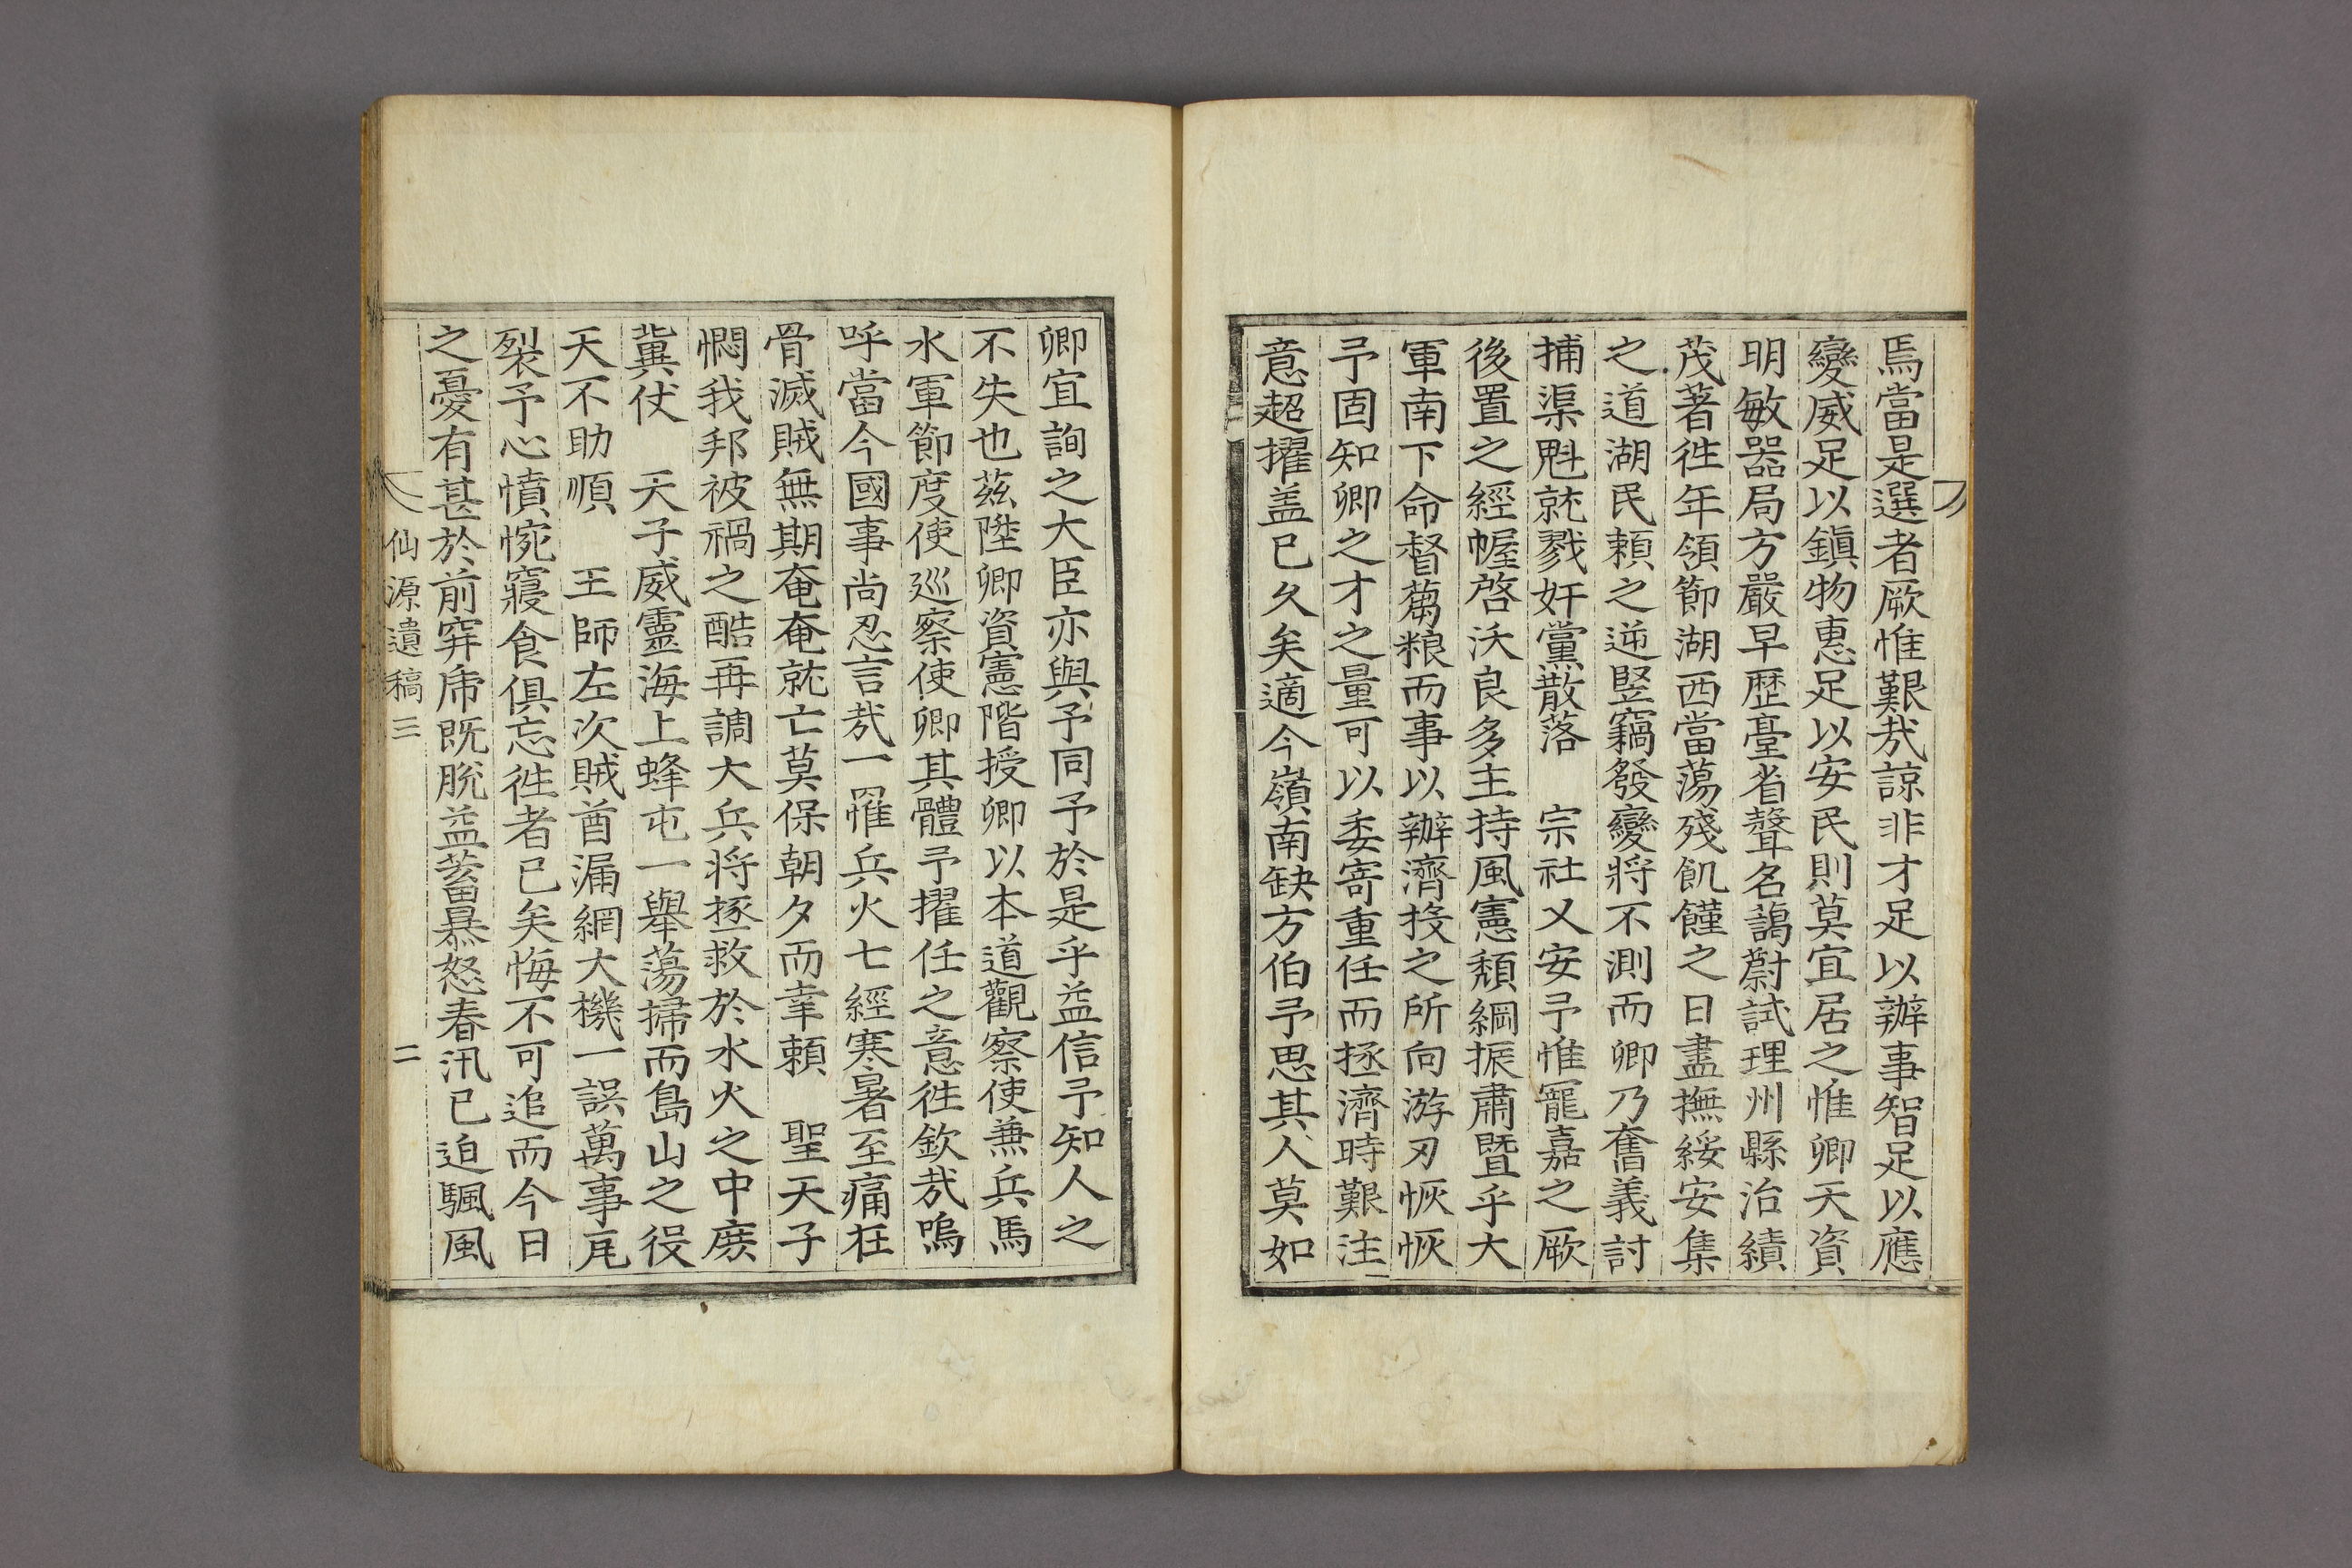 焉當是選者厥惟艱㢤諒非才足以辦事智足以應
變威足以鎭物惠足以安民則莫宜居之惟卿天資
明敏器局方嚴早歷臺省聲名藹蔚試理州縣治績
茂著徃年領節湖西當蕩殘飢饉之日盡撫綏安集
之道湖民頼之逆竪竊發變將不測而卿乃奮義討
捕渠魁就戮奸黨散落　宗社乂安予惟寵嘉之厥
後置之經幄啓沃良多主持風憲頽綱振肅曁乎大
軍南下命督蒭粮而事以辦濟投之所向游刃恢恢
予固知卿之才之量可以委寄重任而拯濟時艱注
意超擢盖已久矣適今嶺南缺方伯予思其人莫如
卿宜詢之大臣亦與予同予於是乎益信予知人之
不失也茲陞卿資憲階授卿以本道觀察使兼兵馬
水軍節度使巡察使卿其體予擢任之意徃欽㢤嗚
呼當今國事尚忍言㢤一罹兵火七經寒暑至痛在
骨滅賊無期奄奄就亡莫保朝夕而幸頼　聖天子
憫我邦被禍之酷再調大兵將拯救於水火之中庶
冀仗　天子威靈海上蜂屯一擧蕩掃而島山之役
天不助順　王師左次賊酋漏網大機一誤萬事瓦
裂予心憤惋寢食俱忘徃者已矣悔不可追而今日
之憂有甚於前穽虎既脫益蓄㬥怒春汛已迫颿風
仙源遺稿三　二